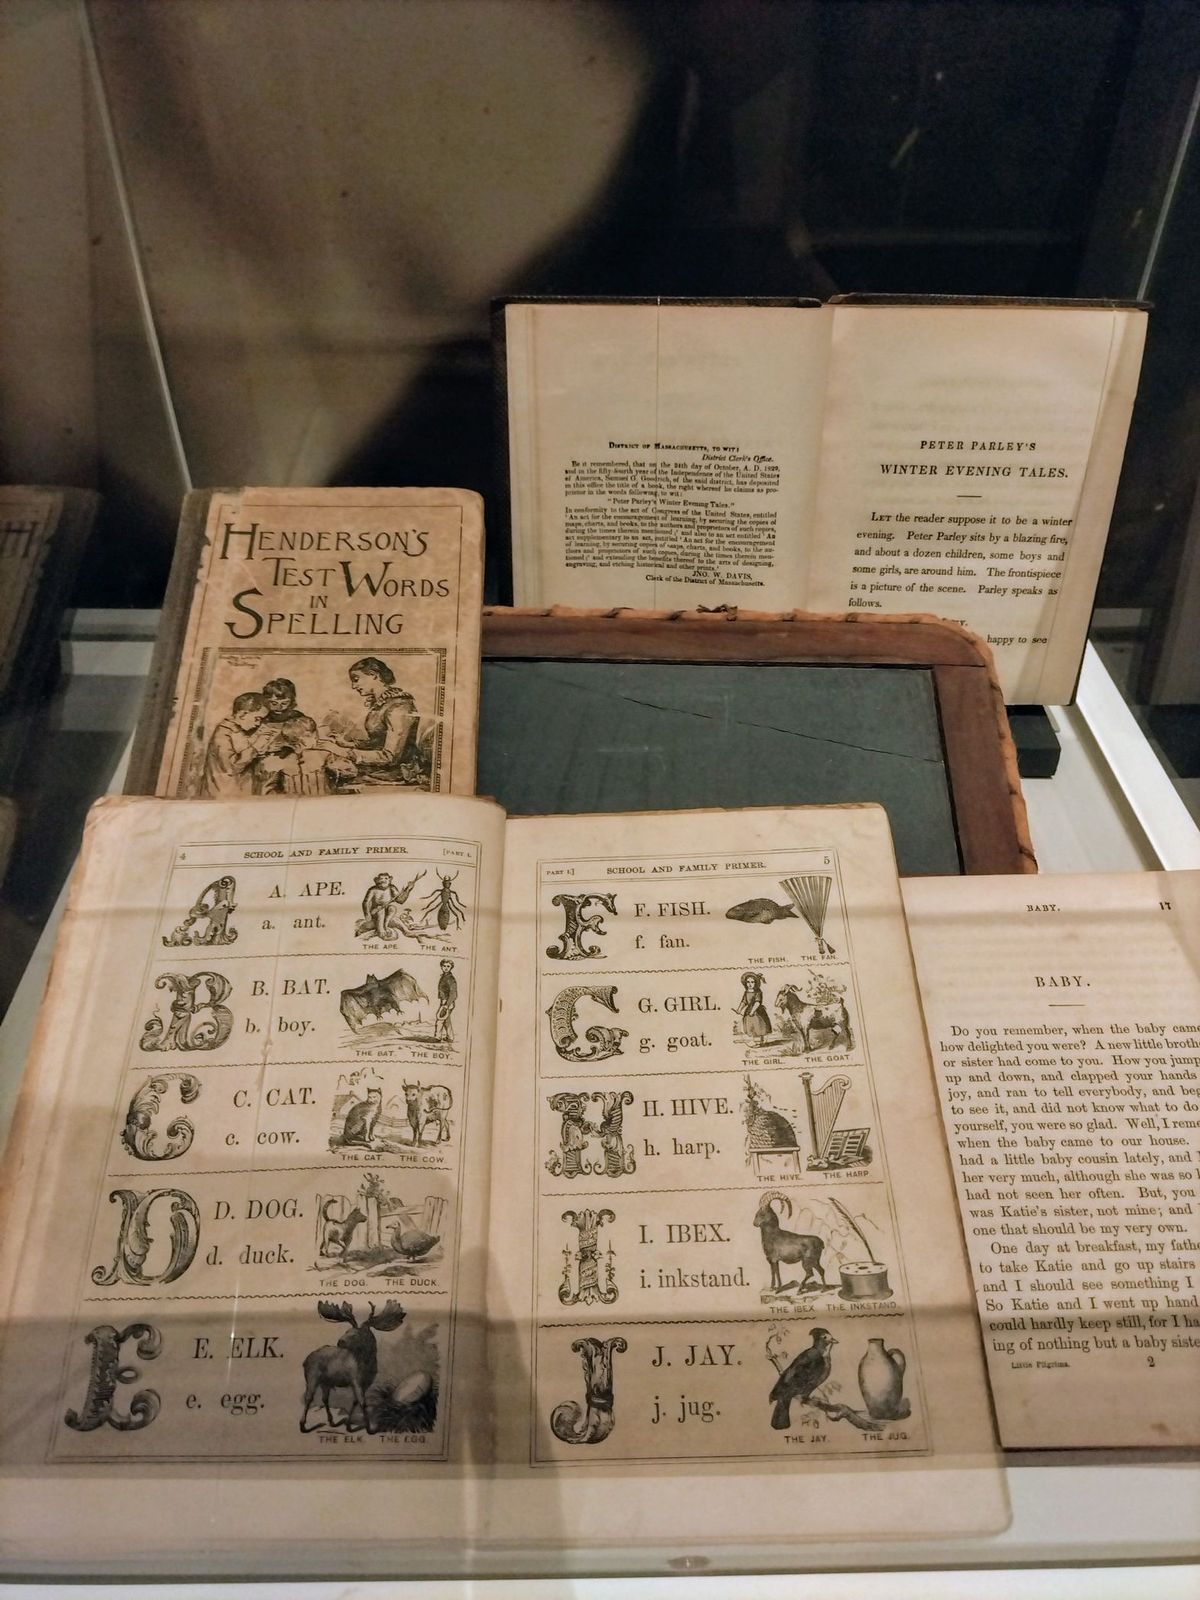 HENDERSON'S
TEST WORDS
IN
SPELLING
DISTRICT OF MASSACHUSETTS, TO WIT:
District Clerk's Office.
Be it remembered, that on the 24th day of October, A. D. 1829,
and in the fifty-fourth year of the Independence of the United States
of America, Samuel G. Goodrich, of the said district, has deposited
in this office the title of a book, the right whereof he claims as pro-
prietor in the words following, to wit:
"Peter Parley's Winter Evening Tales."
In conformity to the act of Congress of the United States, entitled
'An act for the encouragement of learning, by securing the copies of
maps, charts, and books, to the authors and proprietors of such copies,
during the times therein mentioned;' and also to an act entitled 'An
act supplementary to an act, entitled 'An act for the encouragement
of learning, by securing copies of maps, charts, and books, to the au-
thors and proprietors of such copies, during the times therein men-
tioned;' and extending the benefits thereof to the arts of designing,
engraving, and etching historical and other prints.'
JNO. W. DAVIS,
Clerk of the District of Massachusetts.
PETER PARLEY'S
WINTER EVENING TALES.
LET the reader suppose it to be a winter
evening. Peter Parley sits by a blazing fire,
and about a dozen children, some boys and
some girls, are around him. The frontispiece
is a picture of the scene. Parley speaks as
follows.
happy to see
4 SCHOOL AND FAMILY PRIMER. [PART I.
A A. APE.
a. ant.
THE APE. THE ANT.
B B. BAT.
b. boy.
THE BAT. THE BOY.
C C. CAT.
c. cow.
THE CAT. THE COW.
D D. DOG.
d. duck.
THE DOG. THE DUCK.
E E. ELK.
e. egg.
THE ELK. THE EGG.
PART I.] SCHOOL AND FAMILY PRIMER. 5
F F. FISH.
f. fan.
THE FISH. THE FAN.
G G. GIRL.
g. goat.
THE GIRL. THE GOAT.
H H. HIVE.
h. harp.
THE HIVE. THE HARP.
I I. IBEX.
i. inkstand.
THE IBEX. THE INKSTAND.
J J. JAY.
j. jug.
THE JAY. THE JUG.
BABY. 17
BABY.
Do you remember, when the baby came
how delighted you were? A new little brothe
or sister had come to you. How you jump
up and down, and clapped your hands
joy, and ran to tell everybody, and beg
to see it, and did not know what to do
yourself, you were so glad. Well, I reme
when the baby came to our house.
had a little baby cousin lately, and I
her very much, although she was so
had not seen her often. But, you
was Katie's sister, not mine; and
one that should be my very own.
One day at breakfast, my fathe
to take Katie and go up stairs
and I should see something I
So Katie and I went up hand
could hardly keep still, for I ha
ing of nothing but a baby siste
Little Pilgrims. 2